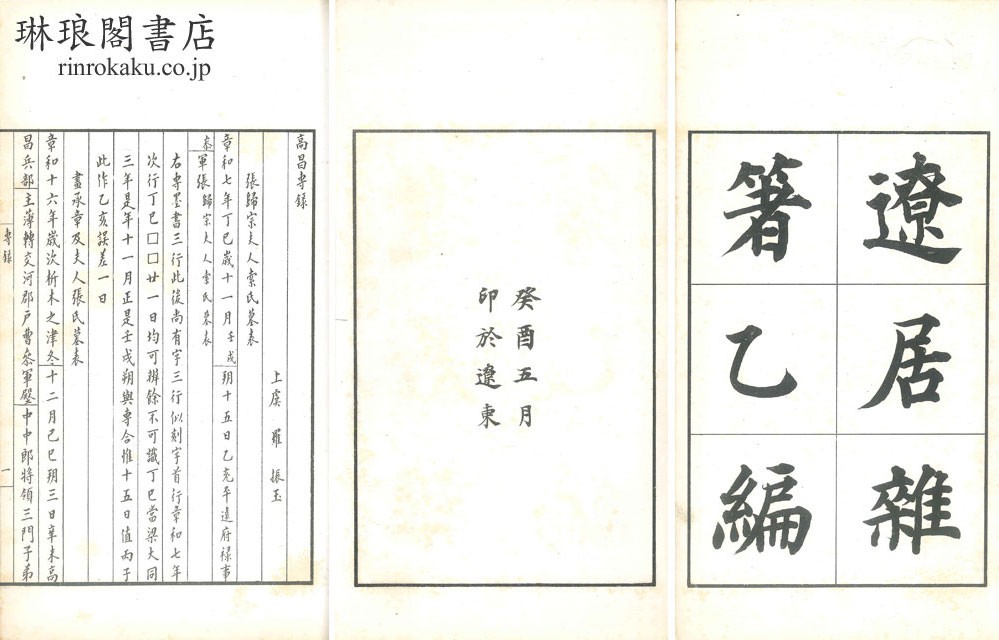 琳琅閣書店
rinrokaku.co.jp
遼居雜
箸乙編
癸酉五月
印於遼東
高昌專錄
上虞羅振玉
張歸宗夫人索氏墓表
章和七年丁巳歲十一月壬戌朔十五日乙亥平遠府祿事
參軍張歸宗夫人索氏墓表
右專墨書三行此後尚有字三行似刻字首行章和七年
次行丁巳□□廿一日均可辨餘不可識丁巳當梁大同
三年是年十一月正是壬戌朔與專合惟十五日值丙子
此作乙亥誤差一日
畫承章及夫人張氏墓表
章和十六年歲次析木之津冬十二月己巳朔三日辛未高
昌兵部主薄轉交河郡戶曹參軍殿中中郎將領三門子弟
專錄
一